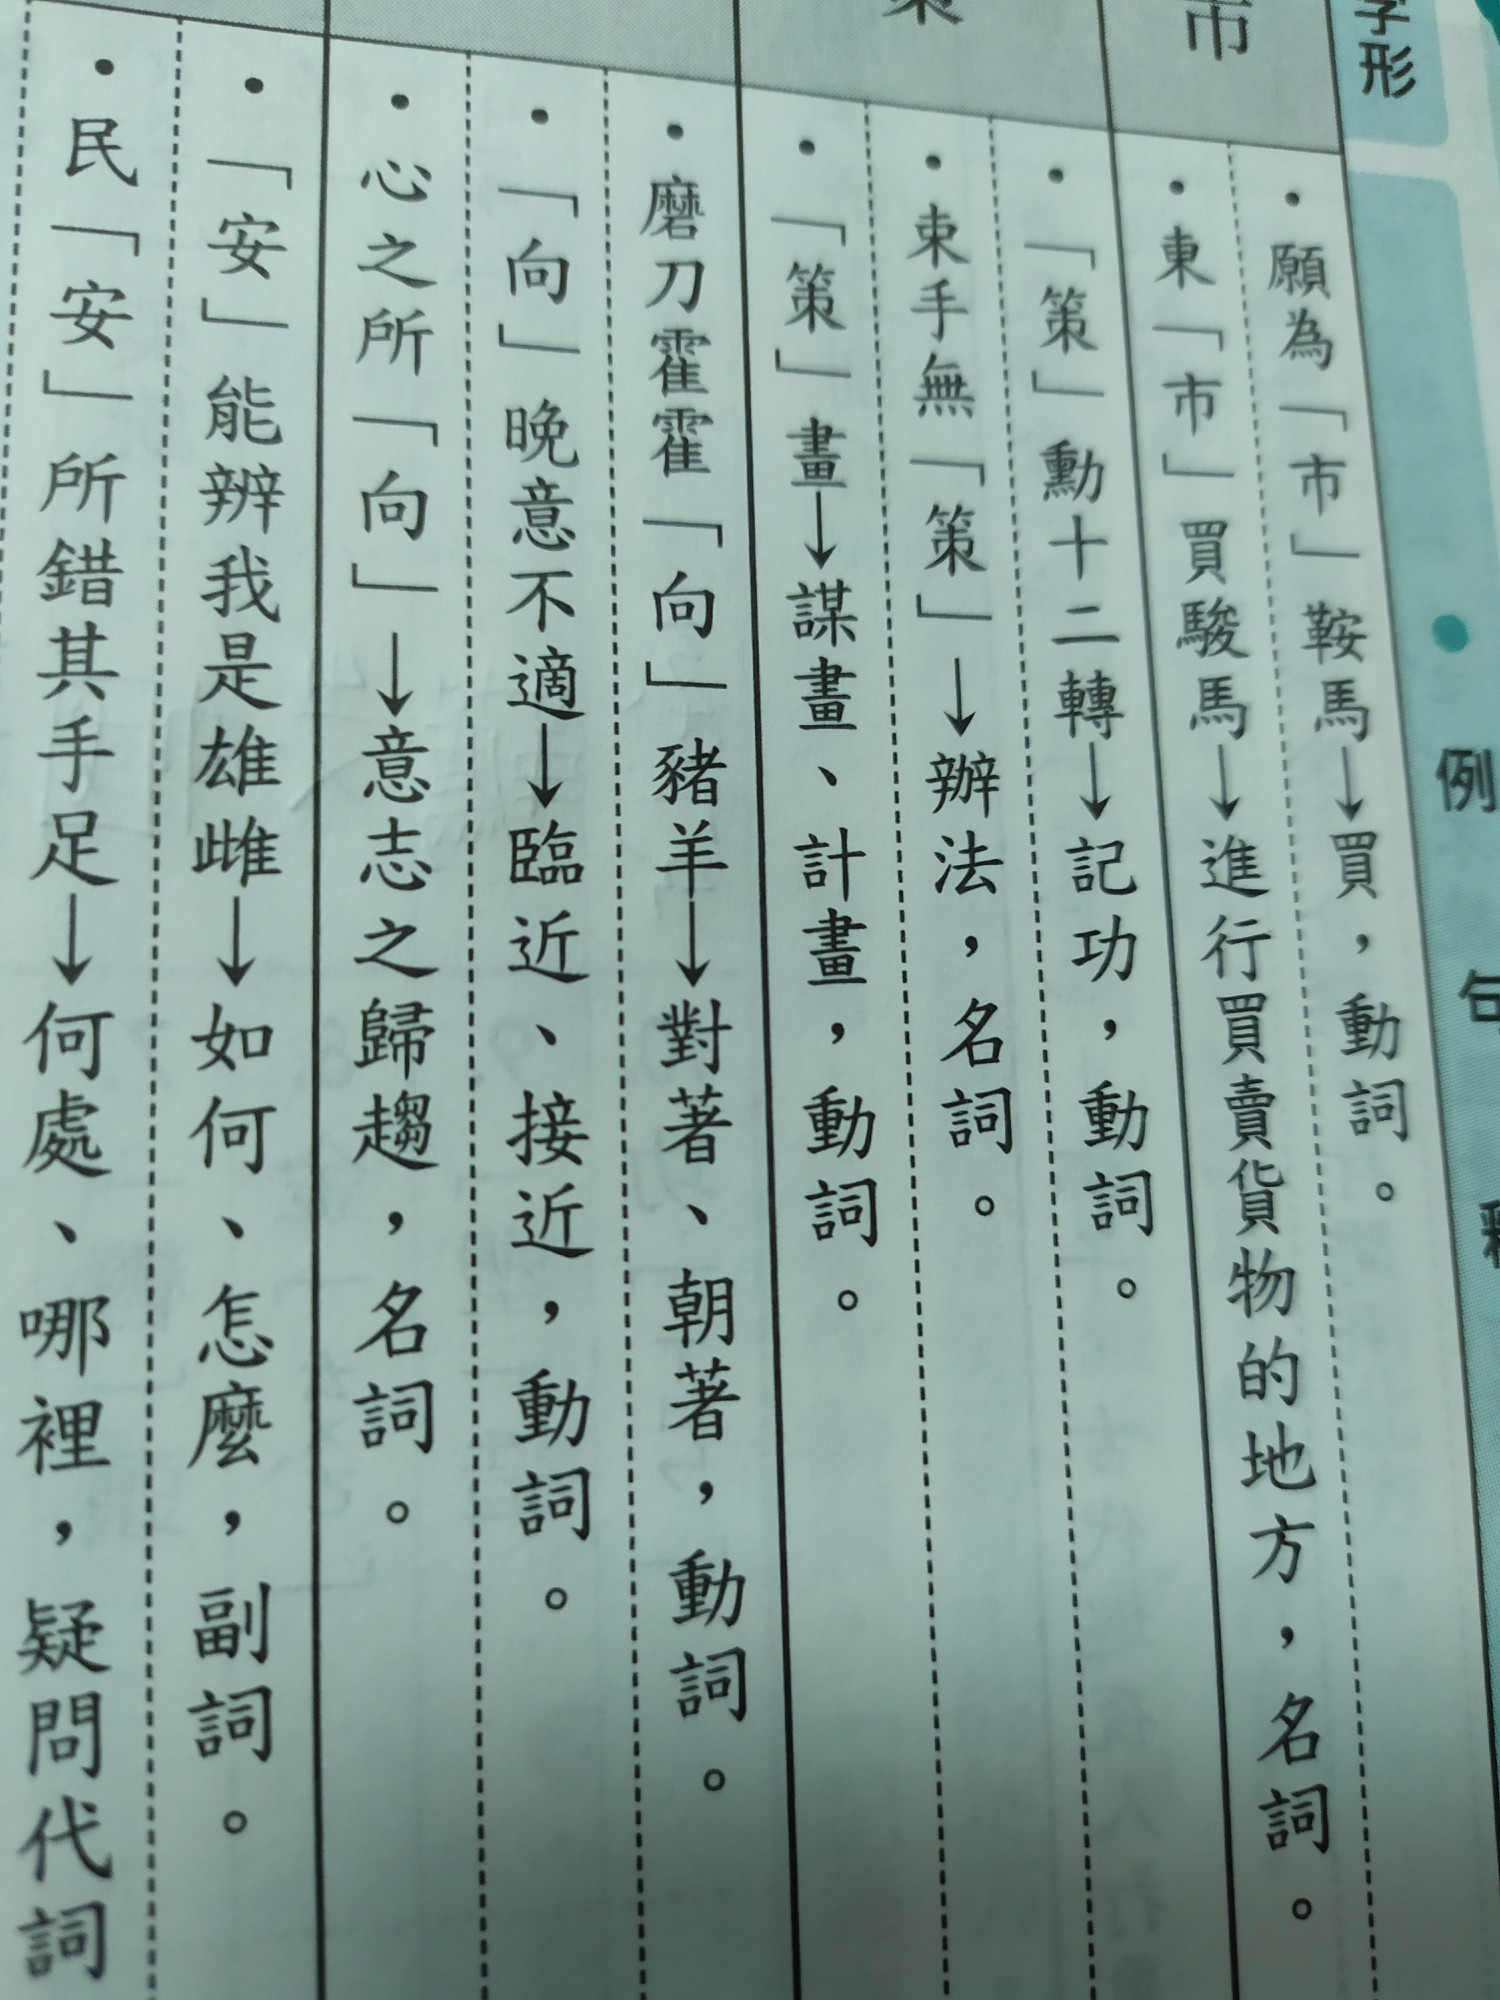 字形
例句
市
願為「市」鞍馬→買，動詞。
東「市」買駿馬→進行買賣貨物的地方，名詞。
策
「策」勳十二轉→記功，動詞。
束手無「策」→辦法，名詞。
「策」畫→謀畫、計畫，動詞。
磨刀霍霍「向」豬羊→對著、朝著，動詞。
「向」晚意不適→臨近、接近，動詞。
心之所「向」→意志之歸趨，名詞。
「安」能辨我是雄雌→如何、怎麼，副詞。
民「安」所錯其手足→何處、哪裡，疑問代詞